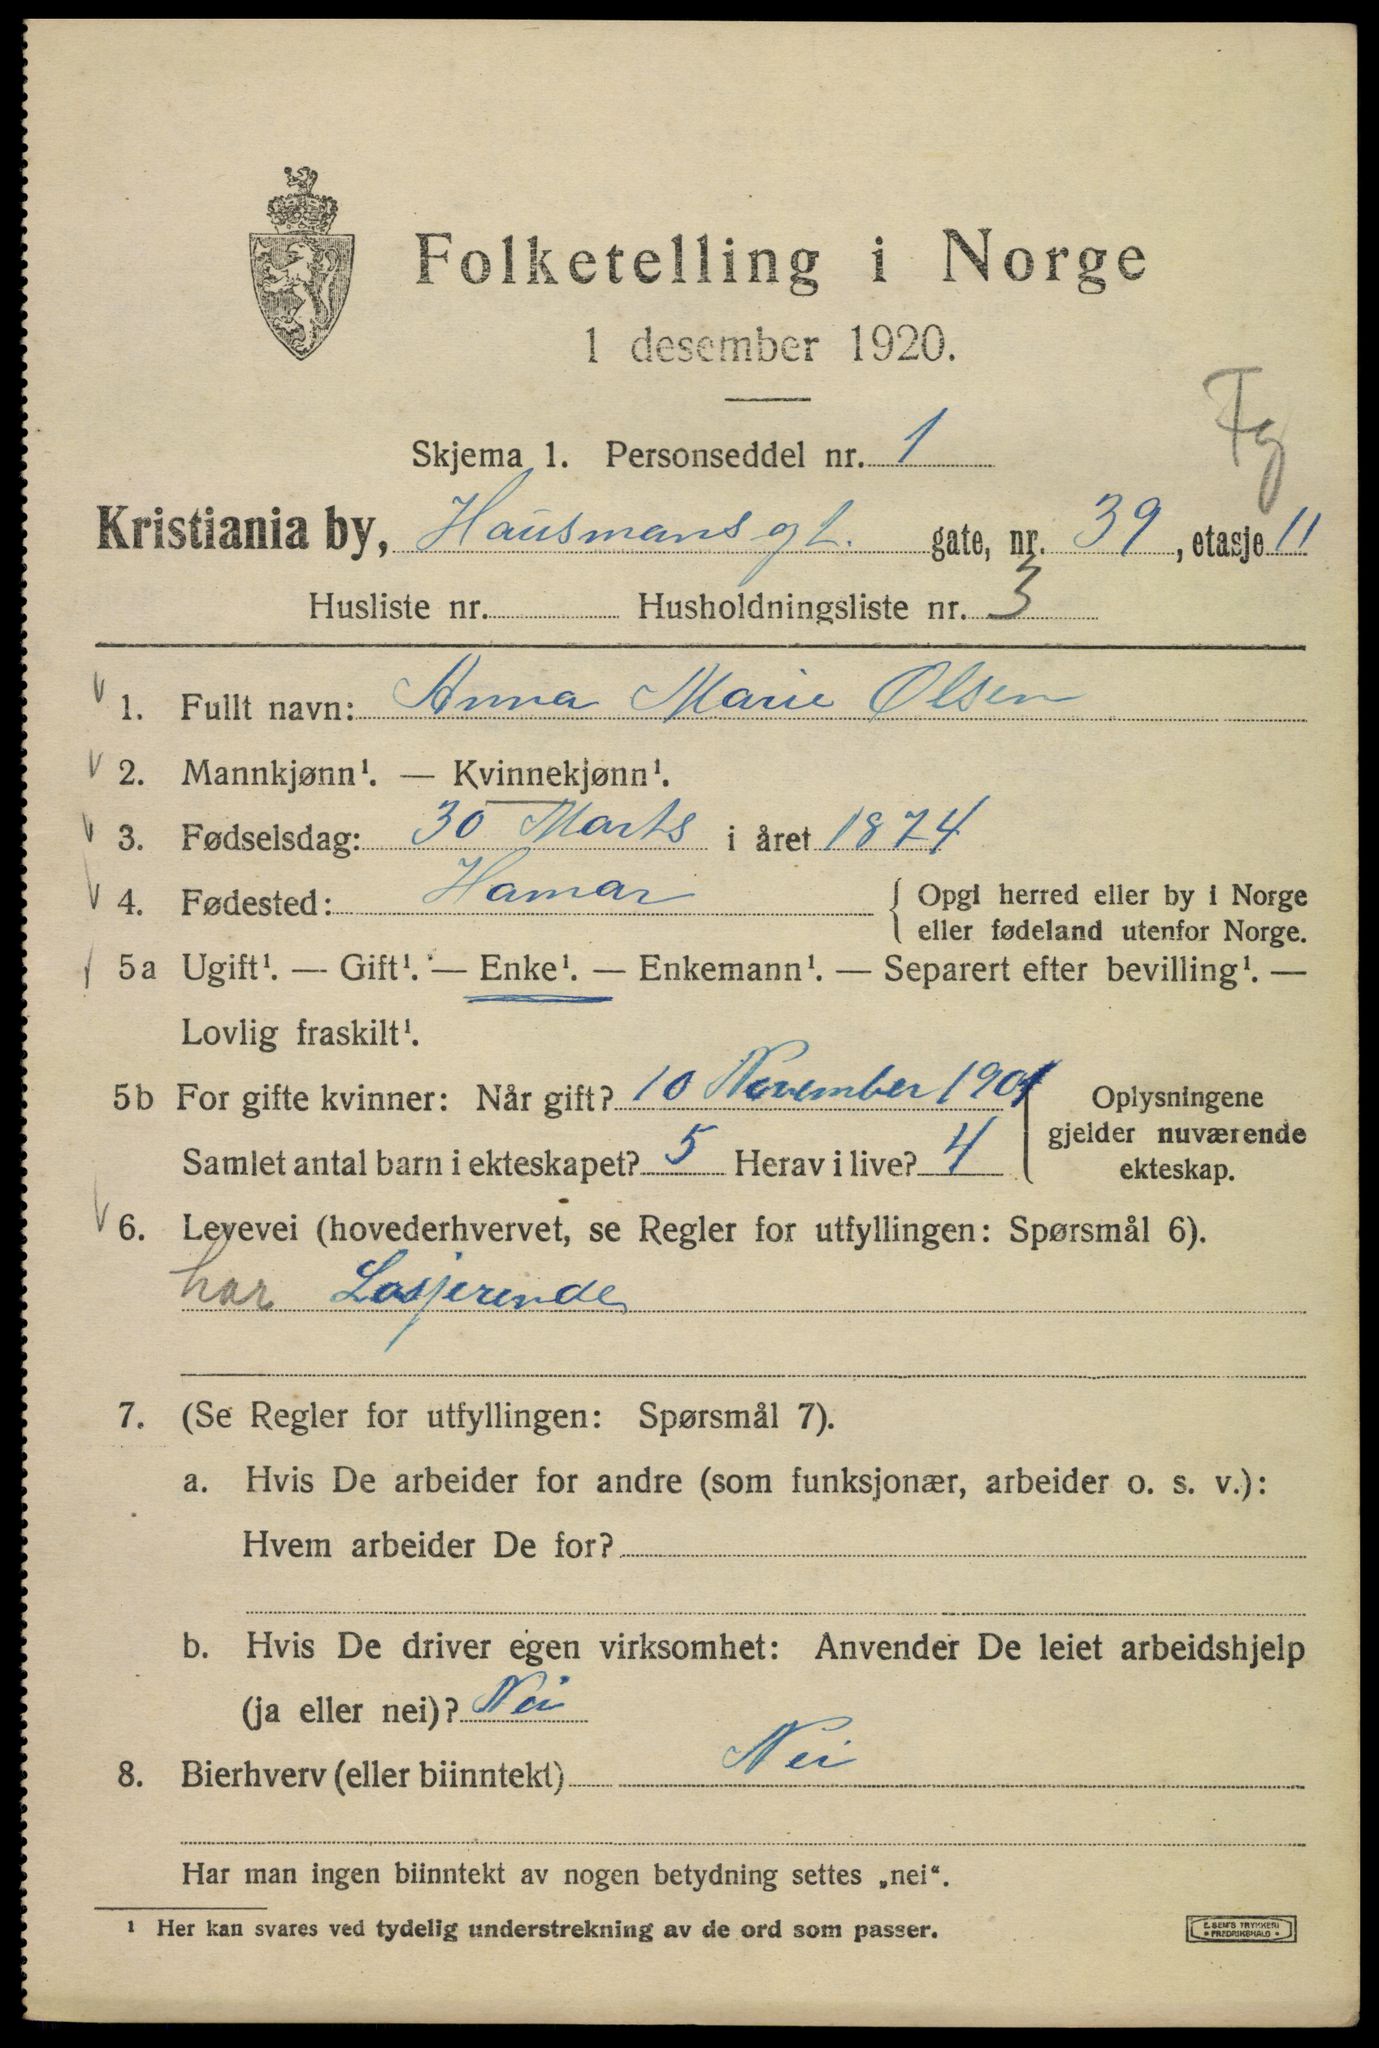 Folketelling i Norge
1 desember 1920.
Fg
Skjema 1. Personseddel nr. 1
Kristiania by, Hausmans gt. gate, nr. 39, etasje 11
Husliste nr. Husholdningsliste nr. 3
1. Fullt navn: Anna Marie Olsen
2. Mannkjønn¹. — Kvinnekjønn¹.
3. Fødselsdag: 30 Marts i året 1874
4. Fødested: Hamar { Opgi herred eller by i Norge
eller fødeland utenfor Norge.
5a Ugift¹. — Gift¹. — Enke¹. — Enkemann¹. — Separert efter bevilling¹. —
Lovlig fraskilt¹.
5b For gifte kvinner: Når gift? 10 November 1901 { Oplysningene
gjelder nuværende
Samlet antal barn i ekteskapet? 5 Herav i live? 4
ekteskap.
6. Levevei (hovederhvervet, se Regler for utfyllingen: Spørsmål 6).
har Losjerende
7. (Se Regler for utfyllingen: Spørsmål 7).
a. Hvis De arbeider for andre (som funksjonær, arbeider o. s. v.):
Hvem arbeider De for?
b. Hvis De driver egen virksomhet: Anvender De leiet arbeidshjelp
(ja eller nei)? Nei
8. Bierhverv (eller biinntekt) Nei
Har man ingen biinntekt av nogen betydning settes „nei“.
¹ Her kan svares ved tydelig understrekning av de ord som passer.
E. SEM'S TRYKKERI
• FREDRIKSHALD •